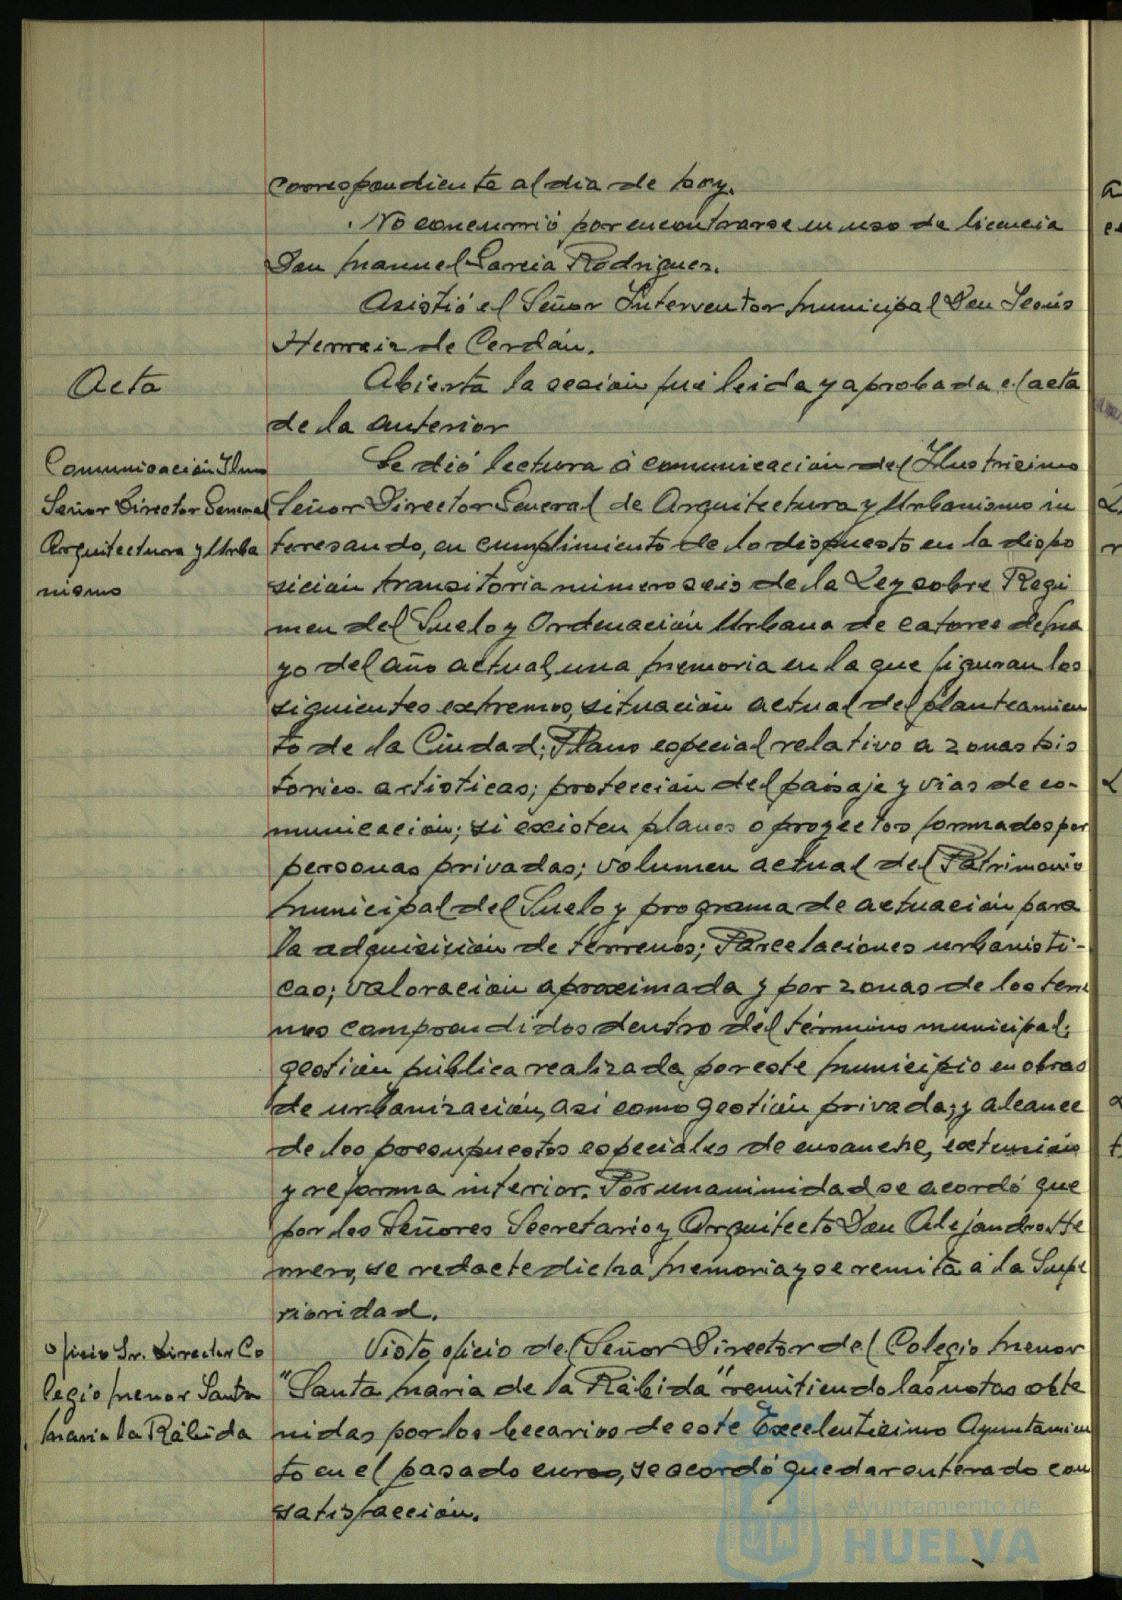 correspondiente al dia de hoy.
No concurrió por encontrarse en uso de licencia
Don Manuel Garcia Rodriguez.
Asistió el Señor Interventor Municipal Don Jesús
Herraiz de Cerdán.
Acta
Abierta la sesión fué leida y aprobada el acta
de la anterior
Comunicación Ilmo
Señor Director General
Arquitectura y Urba
nismo
Se dió lectura á comunicación del Ilustrisimo
Señor Director General de Arquitectura y Urbanismo in
teresando, en cumplimiento de lo dispuesto en la dispo
sición transitoria número seis de la Ley sobre Regi
men del Suelo y Ordenación Urbana de catorce de Ma
yo del año actual, una Memoria en la que figuran los
siguientes extremos, situación actual del planteamien
to de la Ciudad; Plano especial relativo a zonas his
torico-artisticas; protección del paisaje y vias de co-
municación; si existen planos ó proyectos formados por
personas privadas; volumen actual del Patrimonio
Municipal del Suelo y programa de actuación para
la adquisición de terrenos; Parcelaciones urbanisti-
cas; valoración aproximada y por zonas de los terre
nos comprendidos dentro del término municipal;
gestión pública realizada por este Municipio en obras
de urbanización, asi como gestión privada; y alcance
de los presupuestos especiales de ensanche, extensión
y reforma interior. Por unanimidad se acordó que
por los Señores Secretario y Arquitecto Don Alejandro He
rrero, se redacte dicha Memoria y se remita á la Supe
rioridad.
Oficio Sr. Director Co
legio Menor Santa
Maria la Rábida
Visto oficio del Señor Director del Colegio Menor
"Santa Maria de la Rábida" remitiendo las notas obte
nidas por los becarios de este Excelentisimo Ayuntamien
to en el pasado curso, se acordó quedar enterado con
satisfacción.
Ayuntamiento de
HUELVA